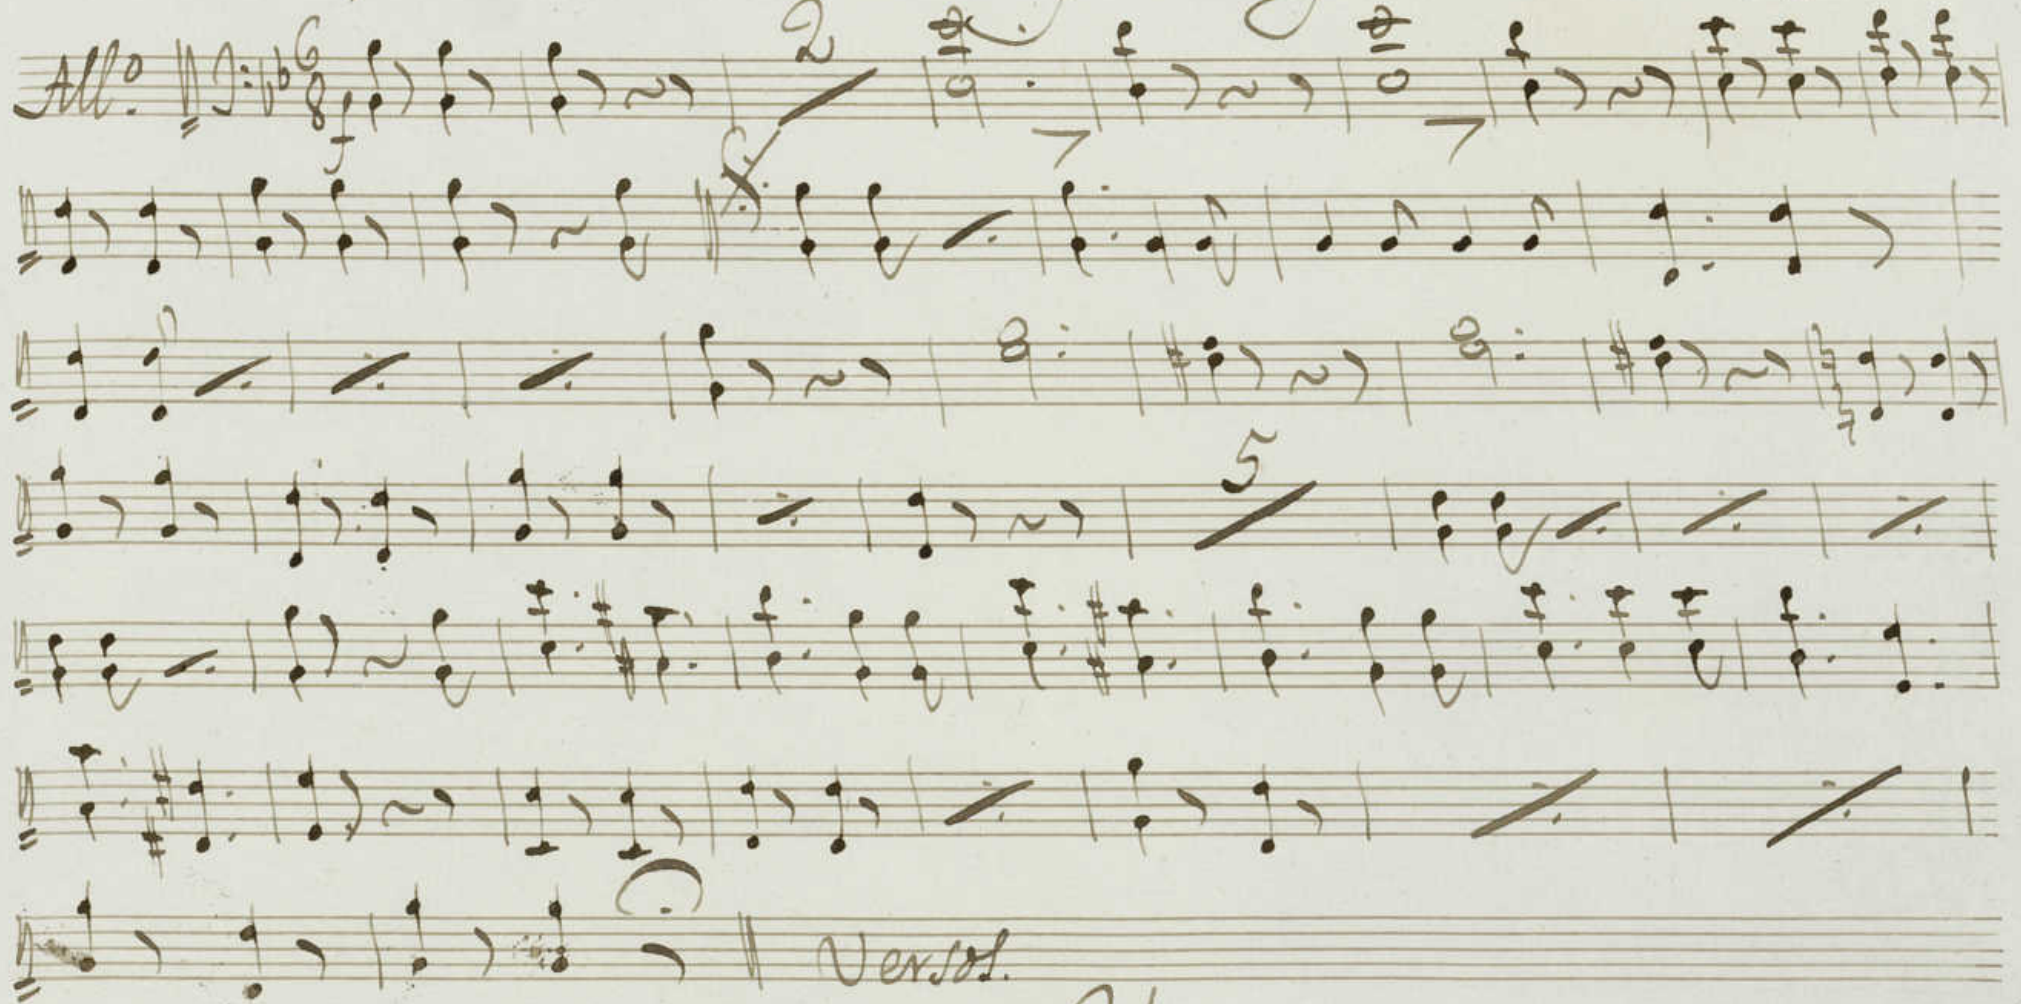 Allo. 6 8 f 2
5
Versos.